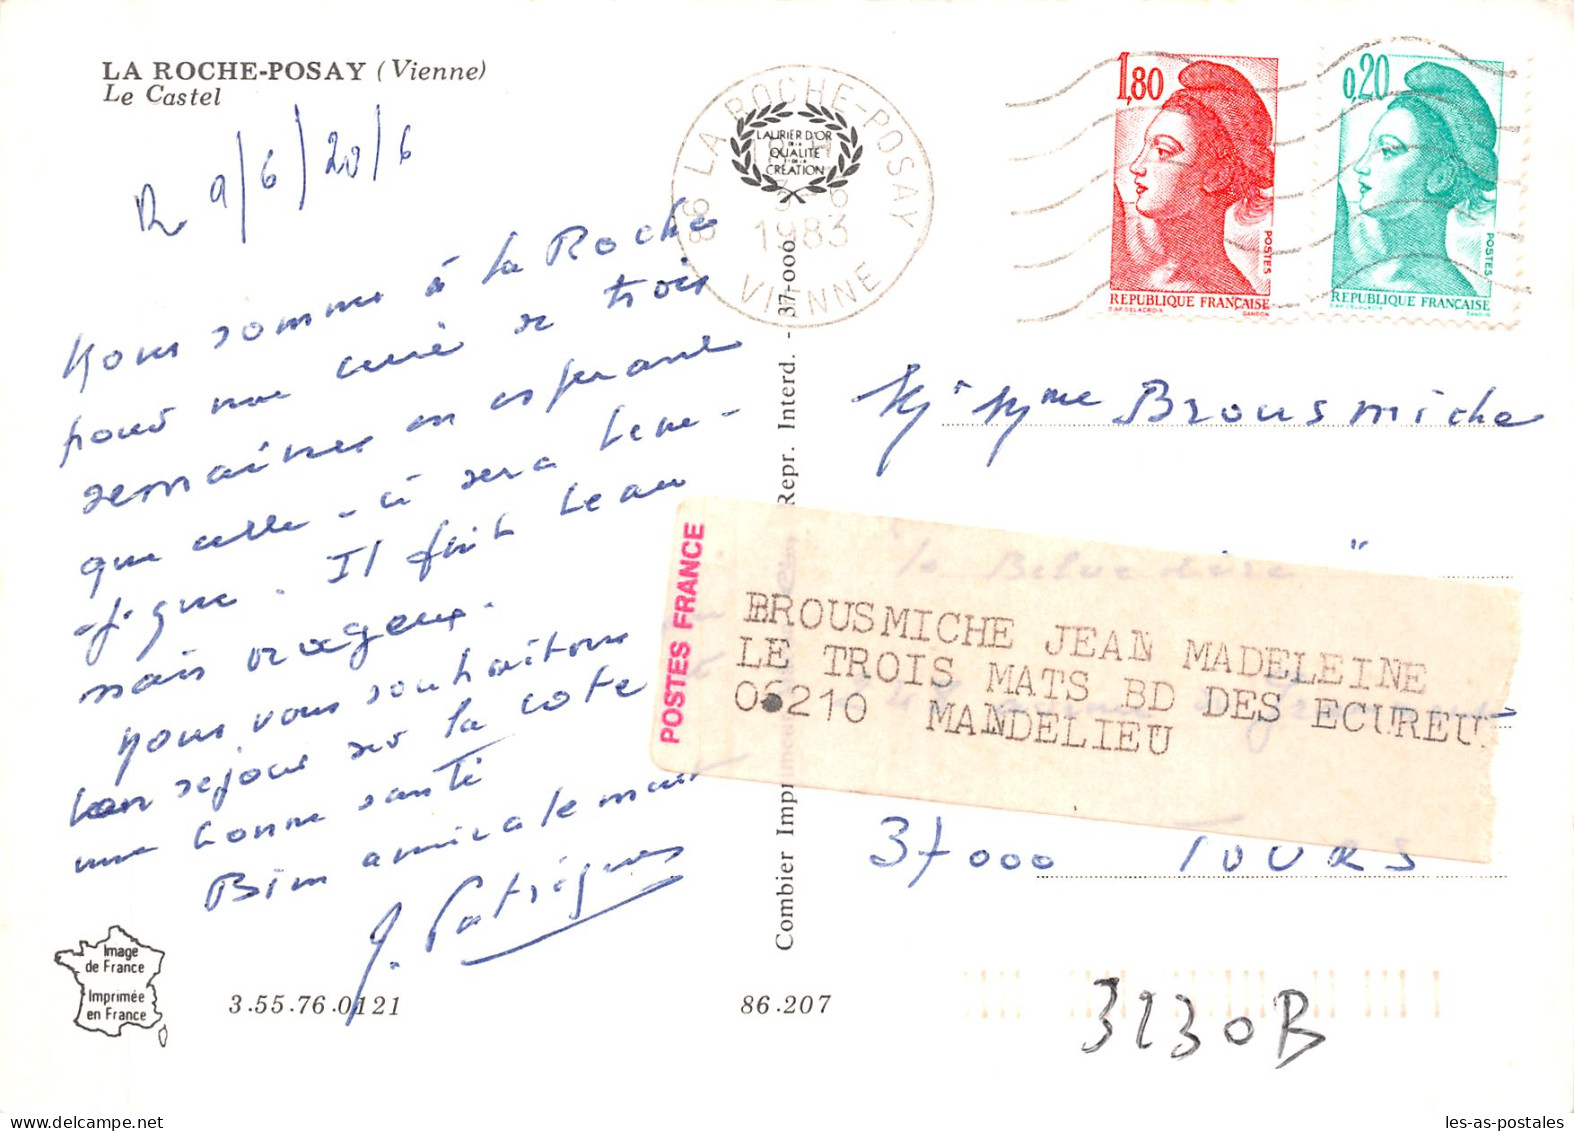 LA ROCHE-POSAY (Vienne)
Le Castel
R 9/6/20/6
Nous sommes à la Roche
pour une cure de trois
semaines en espérant
que celle-ci sera béné-
fique. Il fait beau
mais orageux.
Nous vous souhaitons
bon séjour sur la cote
une bonne santé
Bien amicalement
J. Patrigues
Image
de France
Imprimée
en France
3.55.76.0121
86.207
Combier Imp
Repr. Interd. - 37-000
86 LA ROCHE-POSAY
1983
VIENNE
LAURIER D'OR
DE LA
QUALITE
CREATION
1,80
POSTES
REPUBLIQUE FRANÇAISE
D'AP. DELACROIX GANDON
0,20
POSTES
REPUBLIQUE FRANÇAISE
D'AP. DELACROIX GANDON
M. Mme Brousmiche
"le Belvedère"
POSTES FRANCE
BROUSMICHE JEAN MADELEINE
LE TROIS MATS BD DES ECUREU
06210 MANDELIEU
37000 TOURS
3230B
les-as-postales